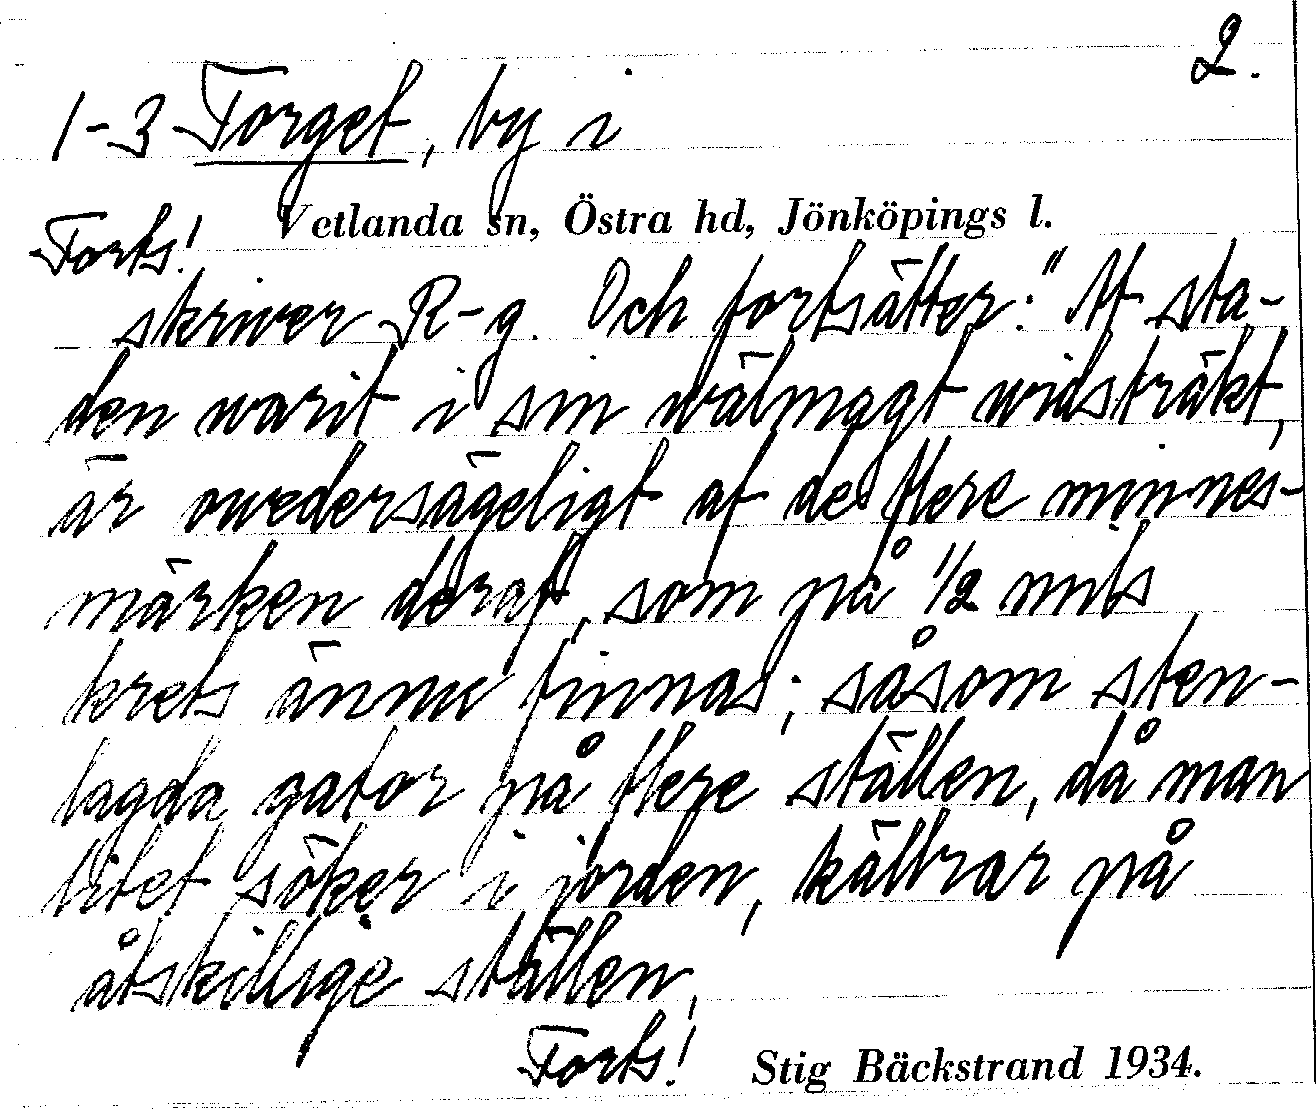 2.
1-3 Torget, by i
Vetlanda sn, Östra hd, Jönköpings l.
Forts!
skriver R-g. Och fortsätter: "At sta-
den warit i sin wälmagt widsträkt,
är owedersägeligt af de flere minnes-
märken deraf, som på 1/2 mils
krets ännu finnas; såsom sten-
lagda gator på flere ställen, då man
litet söker i jorden, källrar på
åtskillige ställen,
Forts! Stig Bäckstrand 1934.